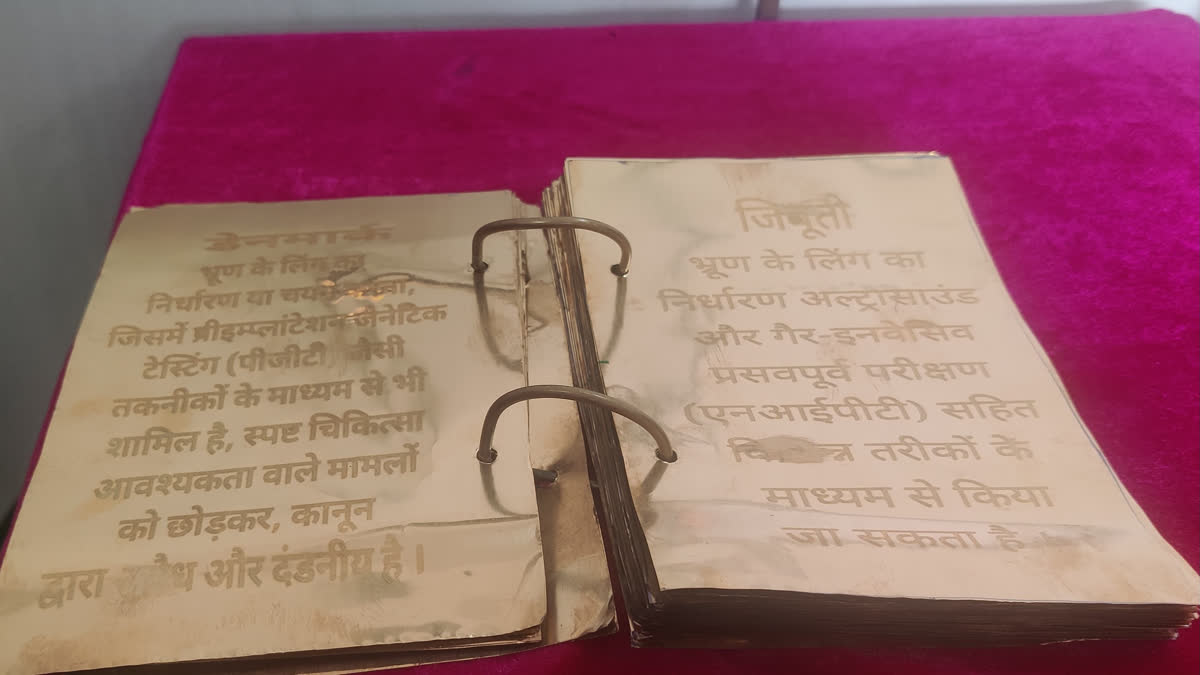 डेनमार्क
भ्रूण के लिंग का
निर्धारण या
जिसमें प्रीइम्प्लांटेशन जेनेटिक
टेस्टिंग (पीजीटी) जैसी
तकनीकों के माध्यम से भी
शामिल है, स्पष्ट चिकित्सा
आवश्यकता वाले मामलों
को छोड़कर, कानून
द्वारा और दंडनीय है।
जिबूती
भ्रूण के लिंग का
निर्धारण अल्ट्रासाउंड
और गैर-इनवेसिव
प्रसवपूर्व परीक्षण
(एनआईपीटी) सहित
तरीकों के
माध्यम से किया
जा सकता है